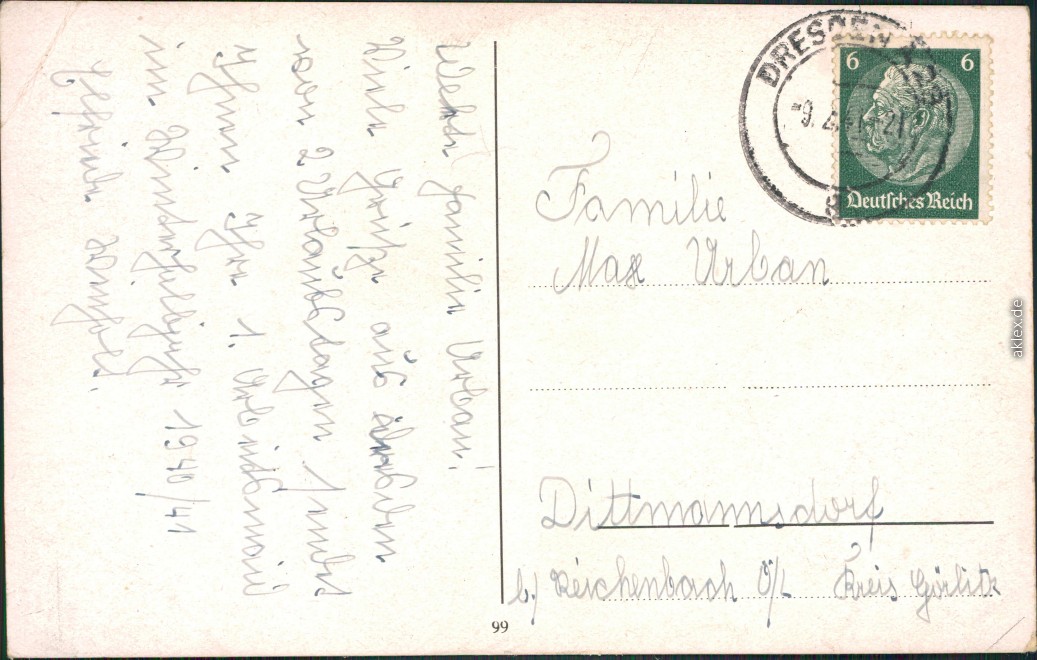 Werte Familie Urban!
Viele Grüße aus Dresden
von 2 Urlaubstagen sendet
Ihnen Ihre 1. Arbeitsmaid
im Winterhalbjahr 1940/41
Gefriede
DRESDEN
-9. 4. 41. -21
6 6
Deutsches Reich
Familie
Max Urban
Dittmannsdorf
b/ Reichenbach O/L Kreis Görlitz
99
aklex.de